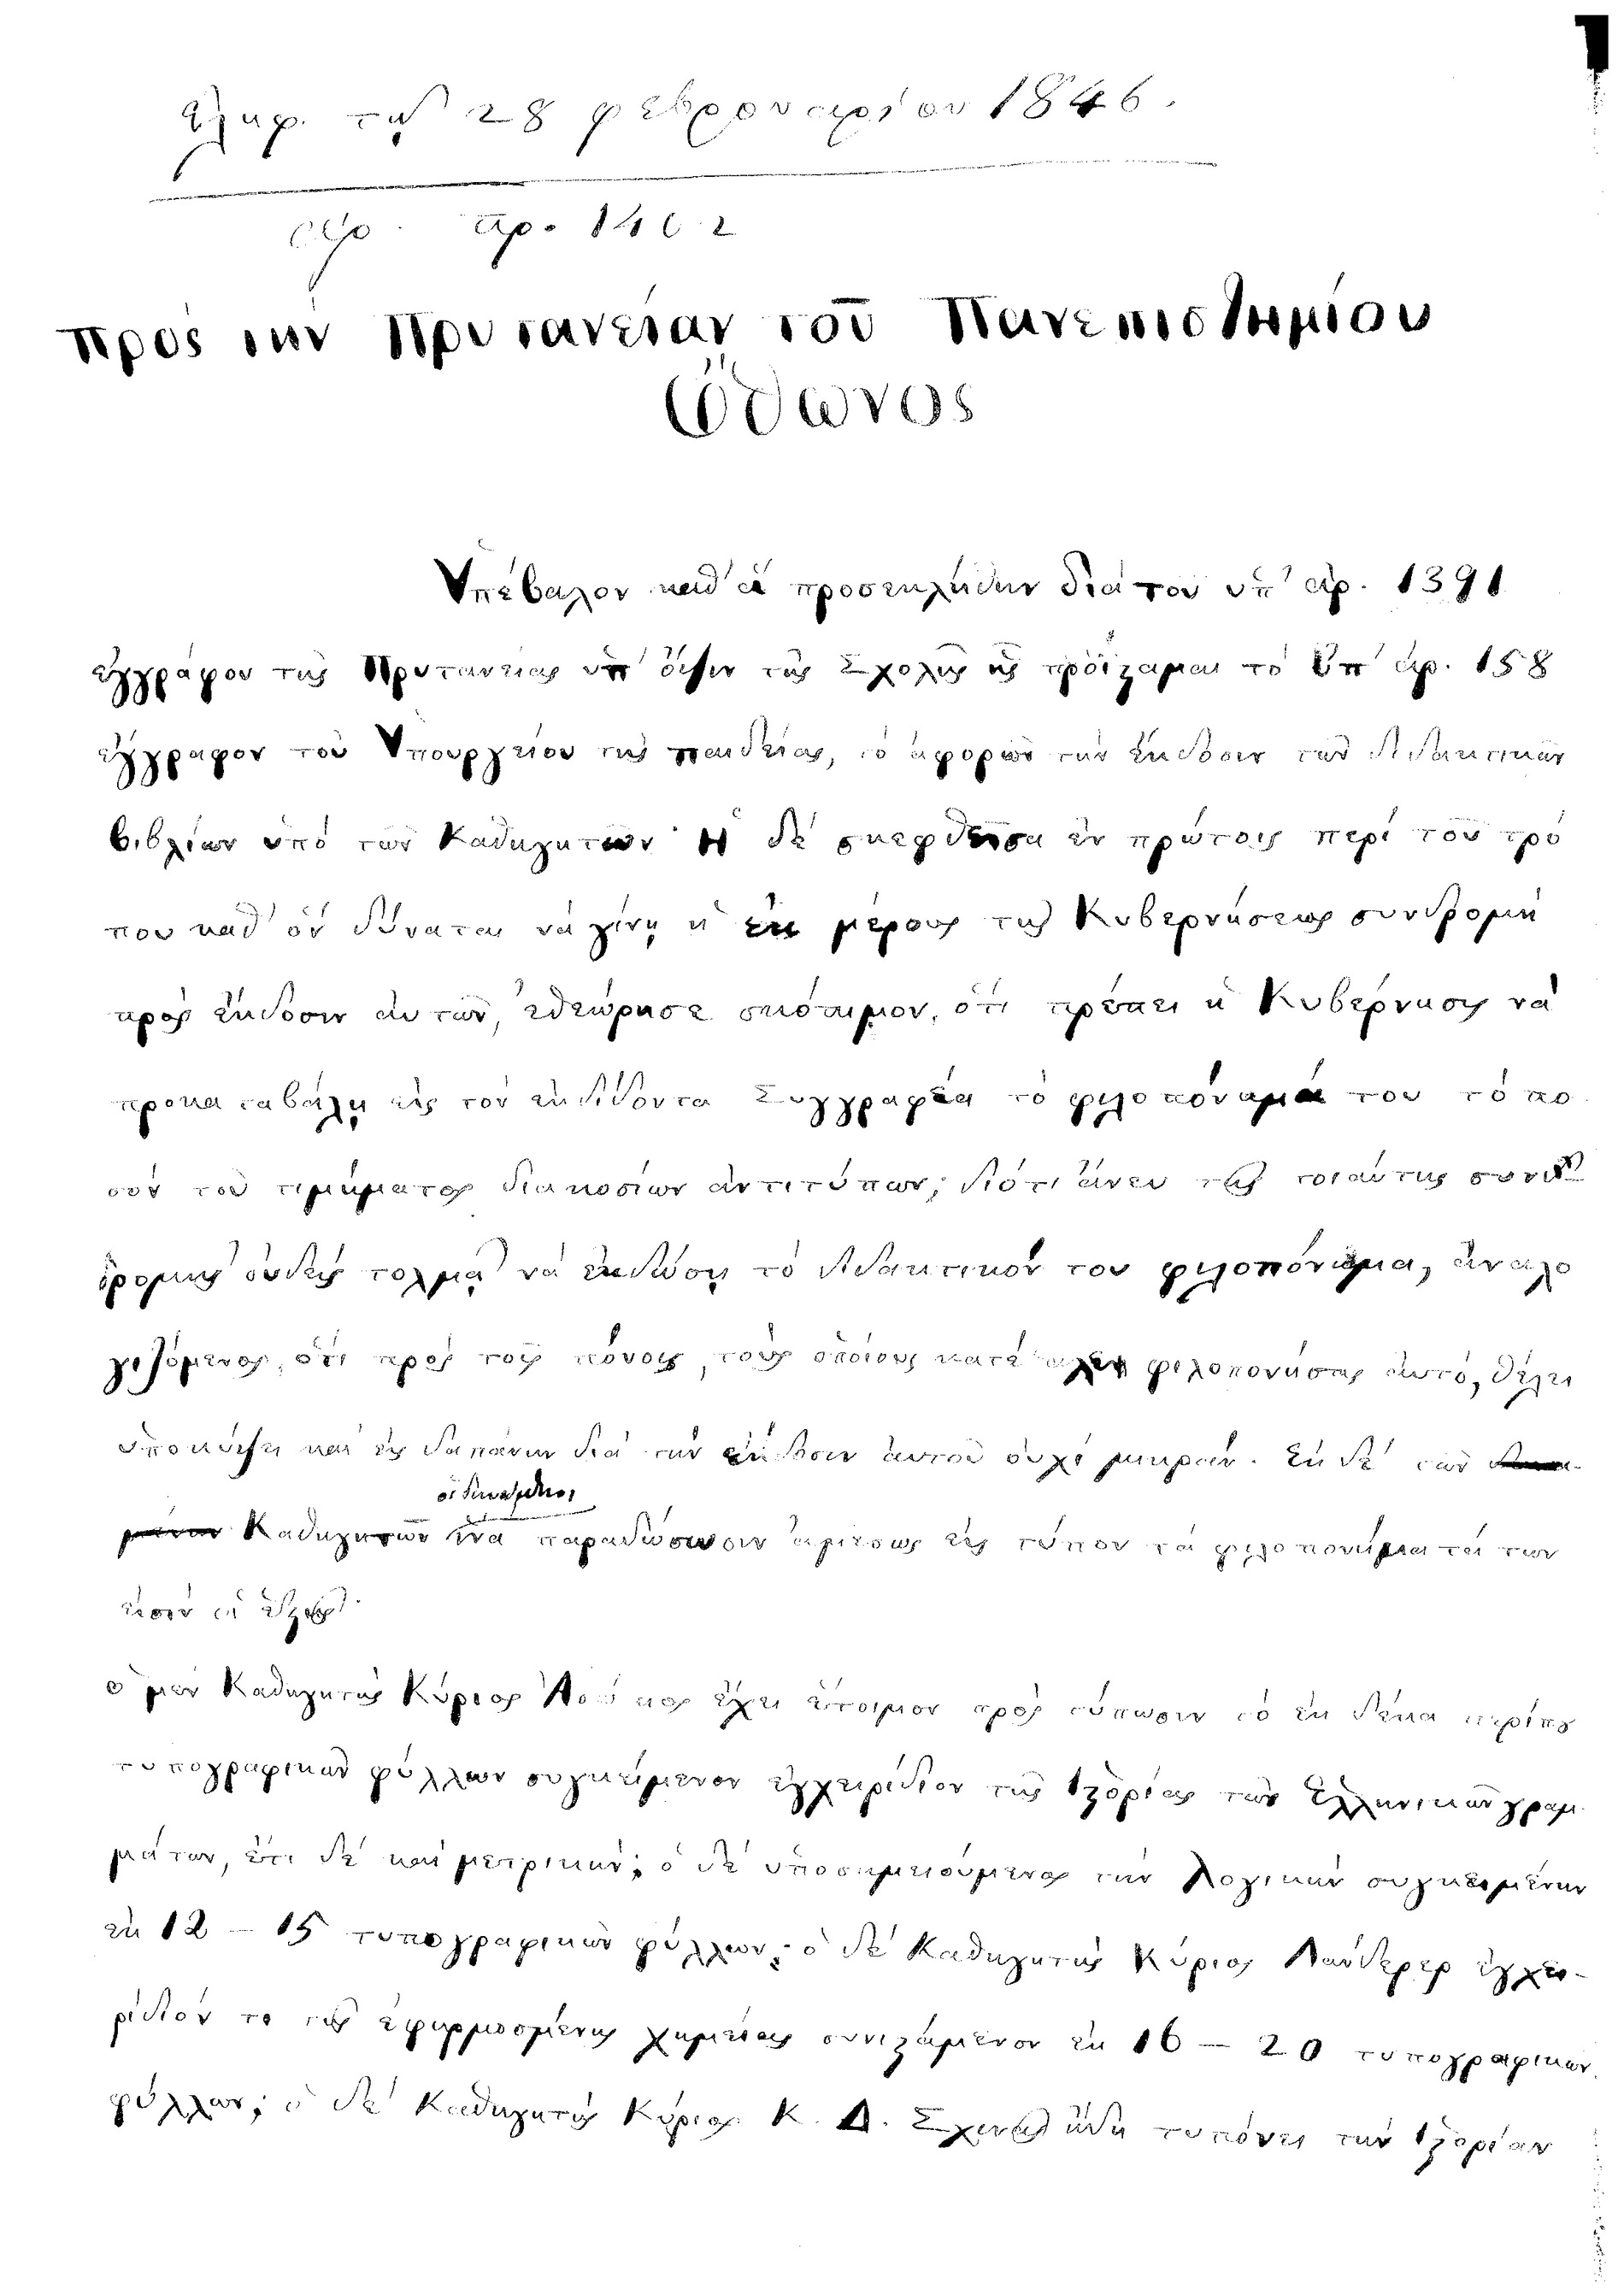 ἐλήφ. τῇ 28 φεβρουαρίου 1846.
ἀρ. πρ. 1402
Πρὸς τὴν Πρυτανείαν τοῦ Πανεπιστημίου
Ὄθωνος
Ὑπέβαλον καθ' ἃ προσεκλήθην διὰ τοῦ ὑπ' ἀρ. 1391
ἐγγράφου τῆς Πρυτανείας ὑπ' ὄψιν τῆς Σχολῆς ἧς προΐσταμαι τὸ ὑπ' ἀρ. 158
ἔγγραφον τοῦ Ὑπουργείου τῆς παιδείας, τὸ ἀφορῶν τὴν ἔκδοσιν τῶν διδακτικῶν
βιβλίων ὑπὸ τῶν Καθηγητῶν· Ἡ δὲ σκεφθεῖσα ἐν πρώτοις περὶ τοῦ τρό
που καθ' ὃν δύναται νὰ γίνῃ ἡ ἐκ μέρους τῆς Κυβερνήσεως συνδρομὴ
πρὸς ἔκδοσιν αὐτῶν, ἐθεώρησε σκόπιμον, ὅτι πρέπει ἡ Κυβέρνησις νὰ
προκαταβάλῃ εἰς τὸν ἐκδίδοντα Συγγραφέα τὸ φιλοπόνημά του τὸ πο
σὸν τοῦ τιμήματος διακοσίων ἀντιτύπων; διότι ἄνευ τῆς τοιαύτης συν
δρομῆς οὐδεὶς τολμᾷ νὰ ἐκδώσῃ τὸ διδακτικόν του φιλοπόνημα, ἀναλο
γιζόμενος, ὅτι πρὸς τοῖς πόνοις, τοὺς ὁποίους κατέβαλεν φιλοπονήσας αὐτό, θέλει
ὑποκύψει καὶ εἰς δαπάνην διὰ τὴν ἔκδοσιν αὐτοῦ οὐχὶ μικράν. Ἐκ δὲ τῶν
οἱ δυνάμενοι
Καθηγητῶν ἵνα παραδώσωσιν ἀμέσως εἰς τύπον τὰ φιλοπονήματά των
εἰσὶν οἱ ἑξῆς·
ὁ μὲν Καθηγητὴς Κύριος Λούκας ἔχει ἕτοιμον πρὸς τύπωσιν τὸ ἐκ δέκα περίπου
τυπογραφικῶν φύλλων συγκείμενον ἐγχειρίδιον τῆς Ἱστορίας τῶν Ἑλληνικῶν γραμ
μάτων, ἔτι δὲ καὶ μετρικήν; ὁ δὲ ὑποσημειούμενος τὴν Λογικὴν συγκειμένην
ἐκ 12 – 15 τυπογραφικῶν φύλλων; ὁ δὲ Καθηγητὴς Κύριος Λάνδερερ ἐγχει-
ρίδιόν τι τῆς ἐφηρμοσμένης χημείας συνιστάμενον ἐκ 16 – 20 τυπογραφικῶν
φύλλων; ὁ δὲ Καθηγητὴς Κύριος Κ. Δ. Σχινᾶς ἤδη τυπόνει τὴν Ἱστορίαν